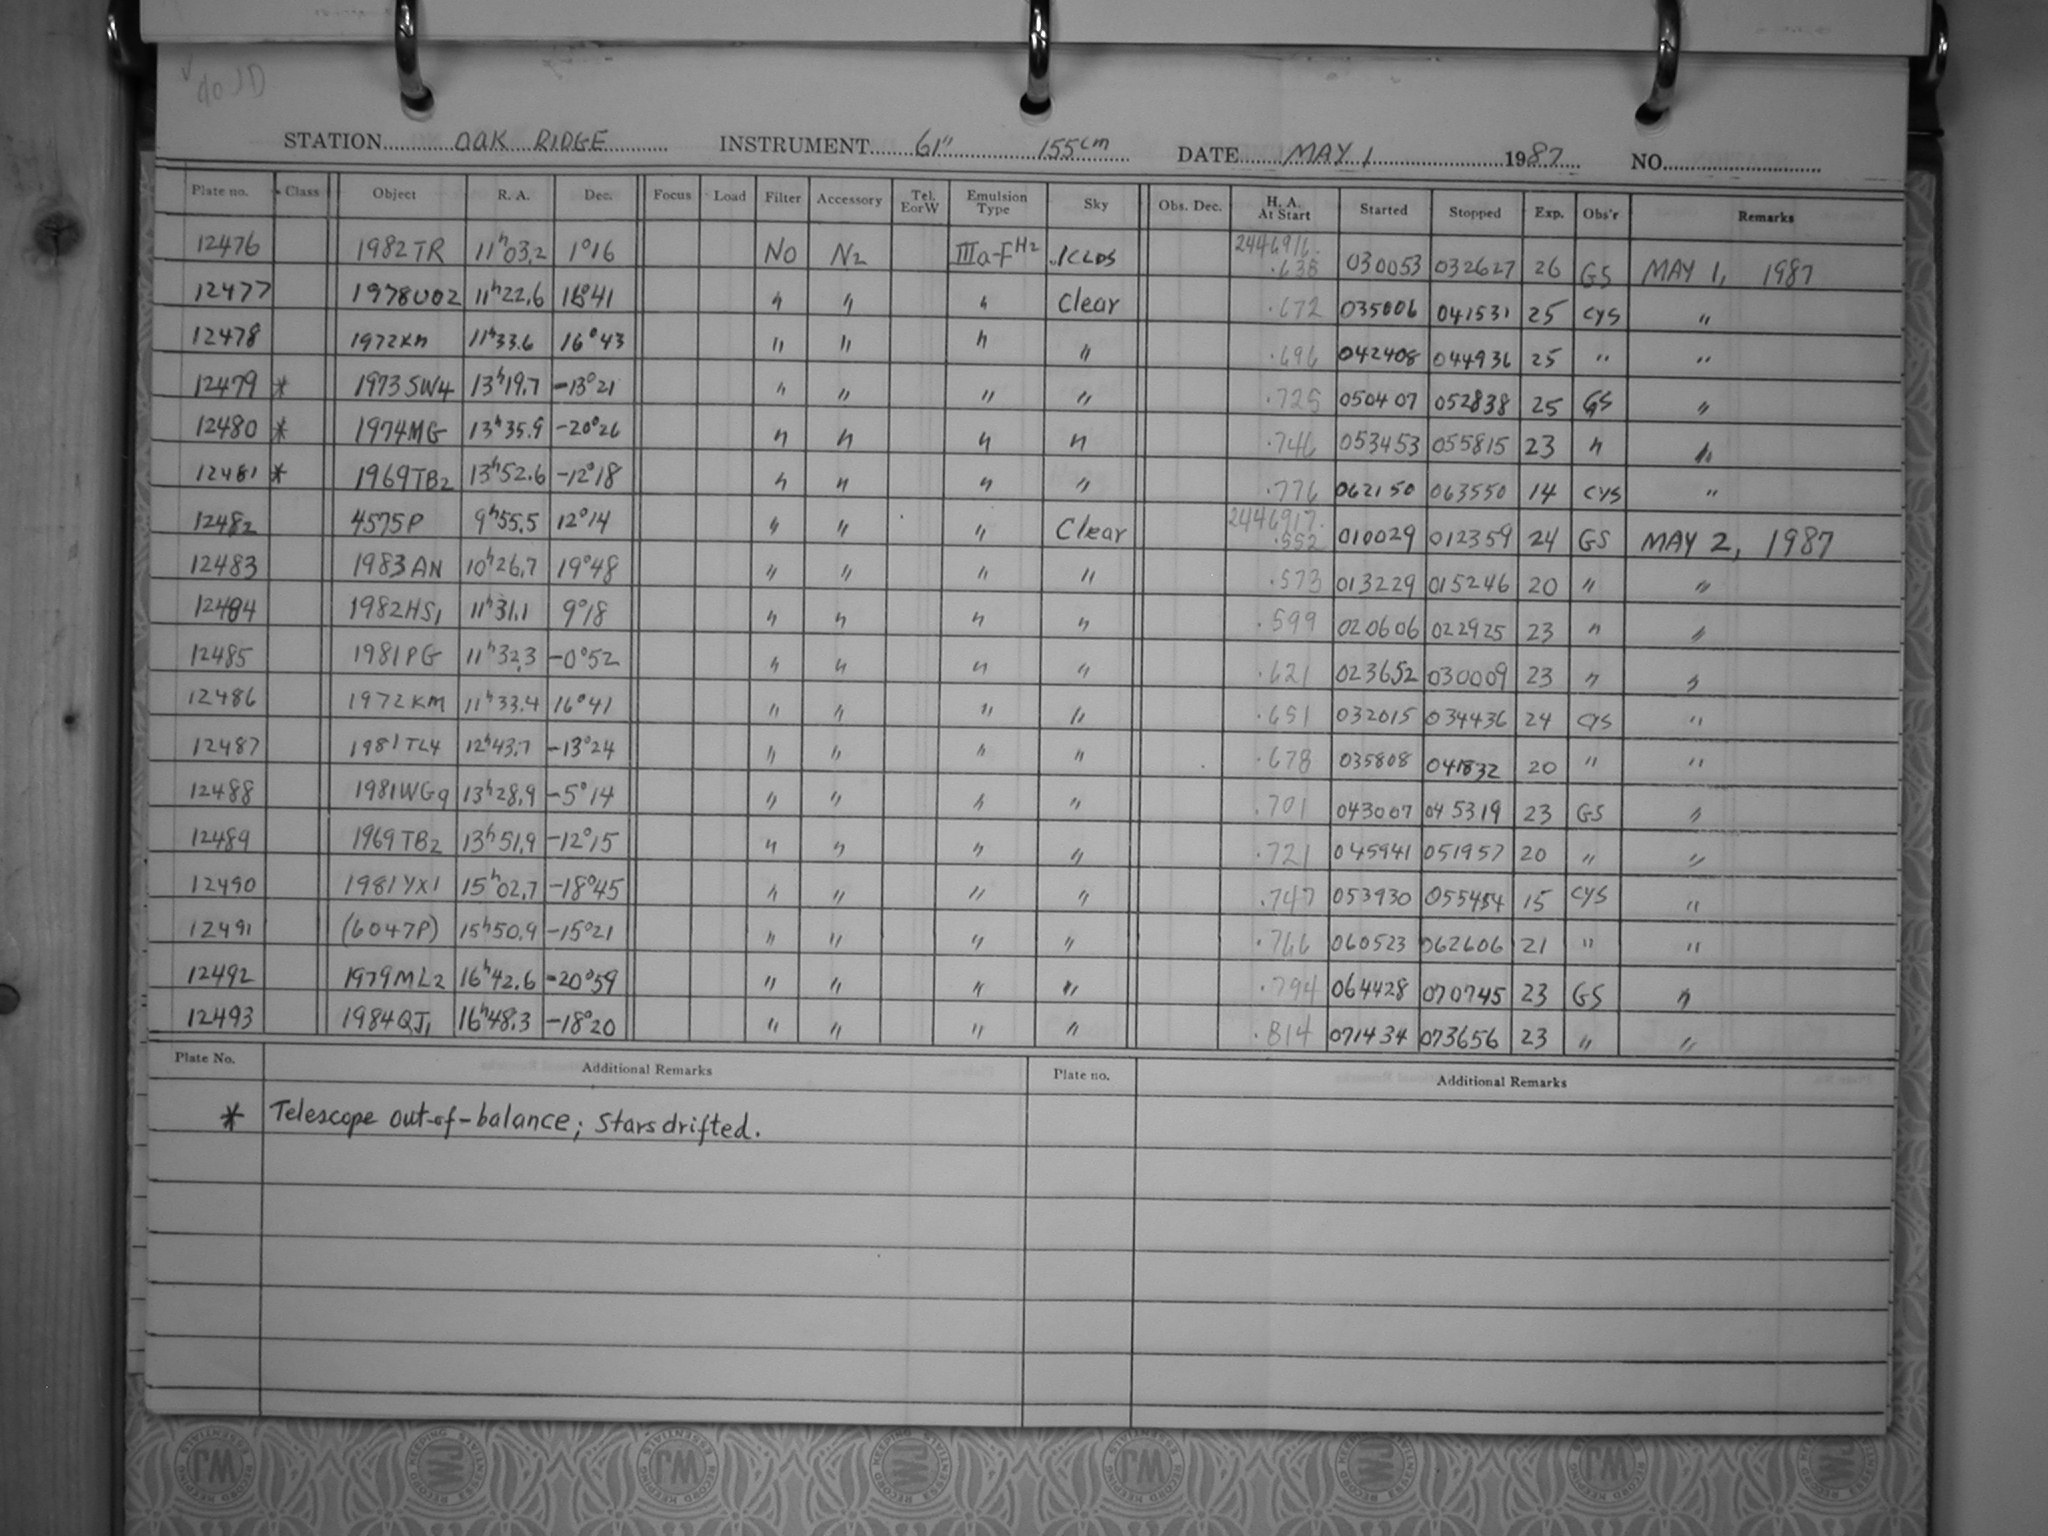 do JD
STATION OAK RIDGE INSTRUMENT 61" 155cm DATE MAY 1 1987 NO.
Plate no. Class Object R. A. Dec. Focus Load Filter Accessory Tel. EorW Emulsion Type Sky Obs. Dec. H. A. At Start Started Stopped Exp. Obs'r Remarks
12476 1982TR 11h03.2 1°16 NO N2 IIIa-F H2 .1CLDS 2446916. .638 030053 032627 26 GS MAY 1, 1987
12477 1978UO2 11h22.6 16°41 " " " Clear .672 035006 041531 25 CYS "
12478 1972KM 11h33.6 16°43 " " " " .696 042408 044936 25 " "
12479 * 1973SW4 13h19.7 -13°21 " " " " .725 050407 052838 25 GS "
12480 * 1974MG 13h35.9 -20°26 " " " " .746 053453 055815 23 " "
12481 * 1969TB2 13h52.6 -12°18 " " " " .776 062150 063550 14 CYS "
12482 4575P 9h55.5 12°14 " " " Clear 2446917. .552 010029 012359 24 GS MAY 2, 1987
12483 1983AN 10h26.7 19°48 " " " " .573 013229 015246 20 " "
12484 1982HS1 11h31.1 9°18 " " " " .599 020606 022925 23 " "
12485 1981PG 11h32.3 -0°52 " " " " .621 023652 030009 23 " "
12486 1972KM 11h33.4 16°41 " " " " .651 032015 034436 24 CYS "
12487 1981TL4 12h43.7 -13°24 " " " " .678 035808 041832 20 " "
12488 1981WG9 13h28.9 -5°14 " " " " .701 043007 045319 23 GS "
12489 1969TB2 13h51.9 -12°15 " " " " .721 045941 051957 20 " "
12490 1981YX1 15h02.7 -18°45 " " " " .747 053930 055454 15 CYS "
12491 (6047P) 15h50.9 -15°21 " " " " .766 060523 062606 21 " "
12492 1979ML2 16h42.6 -20°59 " " " " .794 064428 070745 23 GS "
12493 1984QJ1 16h48.3 -18°20 " " " " .814 071434 073656 23 " "
Plate No. Additional Remarks Plate no. Additional Remarks
* Telescope out-of-balance; Stars drifted.